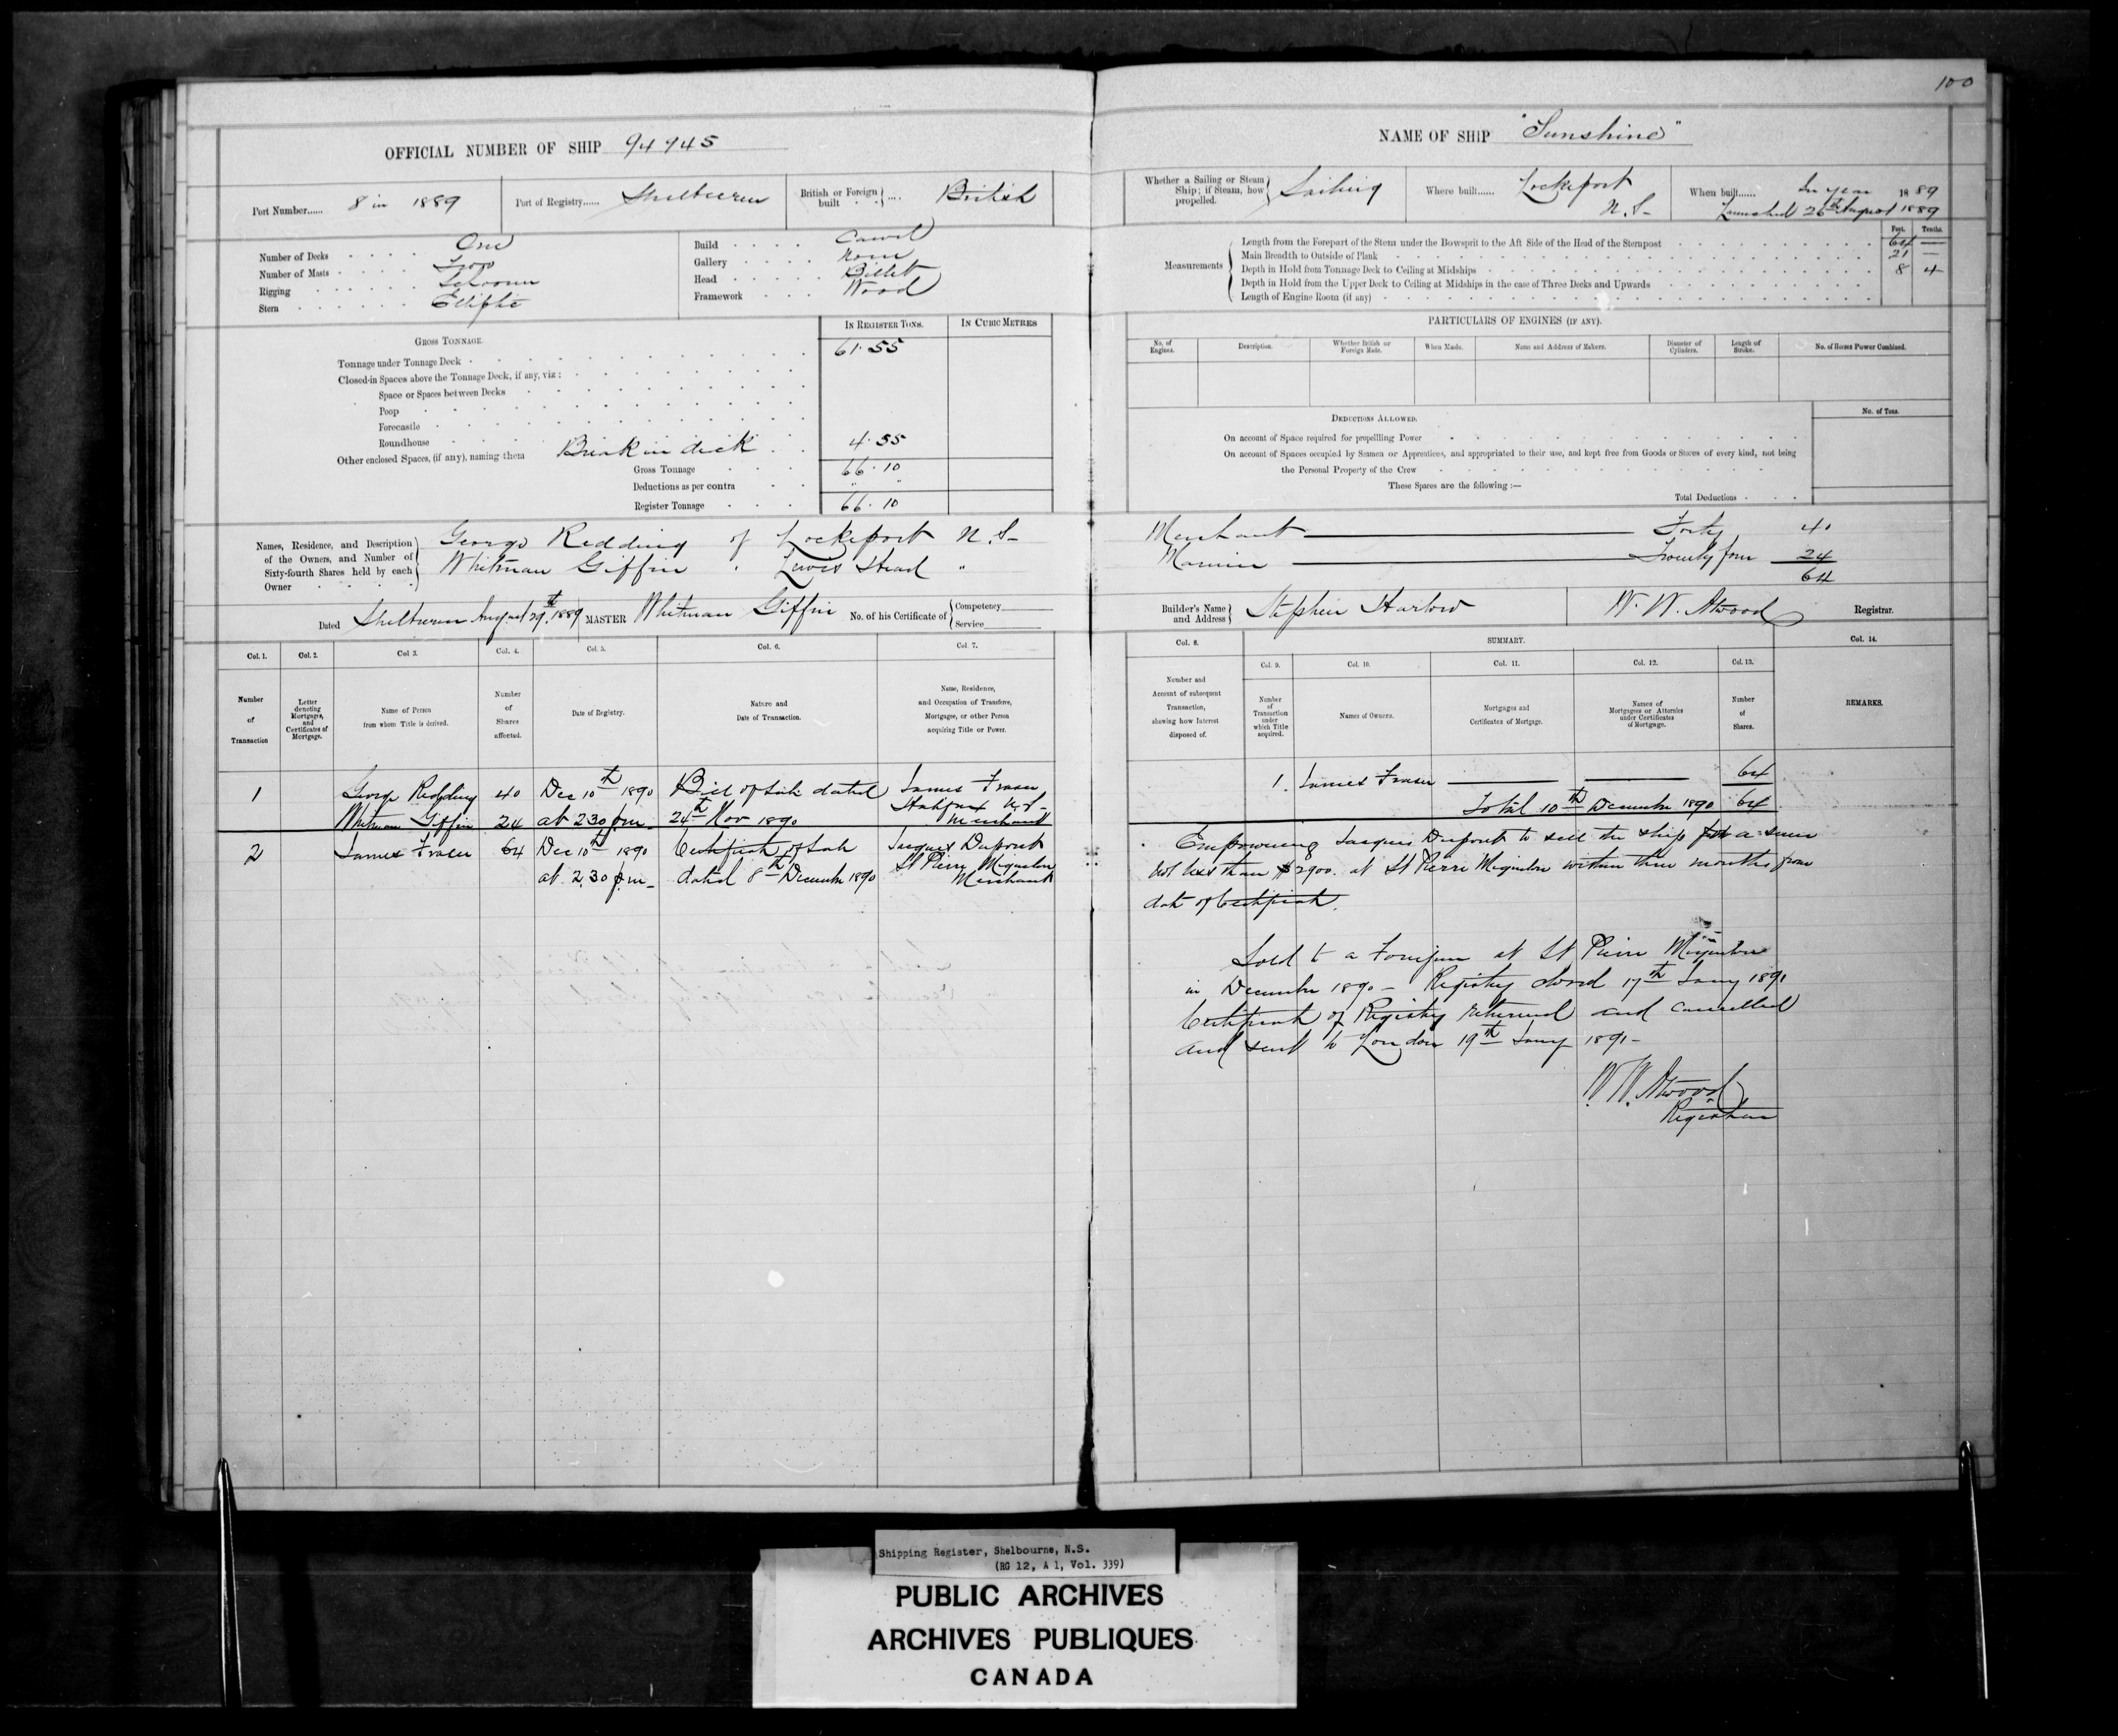 100
OFFICIAL NUMBER OF SHIP 94945
NAME OF SHIP "Sunshine"
Port Number...... 8 in 1889
Port of Registry...... Shelburne
British or Foreign built .... British
Whether a Sailing or Steam Ship; if Steam, how propelled. Sailing
Where built...... Lockeport N.S-
When built...... In year 1889
Launched 26th August 1889
Number of Decks One
Number of Masts Two
Rigging Schooner
Stern Elliptic
Build Carvel
Gallery None
Head Billet
Framework Wood
Measurements
Feet. Tenths.
Length from the Forepart of the Stem under the Bowsprit to the Aft Side of the Head of the Sternpost 64 —
Main Breadth to Outside of Plank 21 —
Depth in Hold from Tonnage Deck to Ceiling at Midships 8 4
Depth in Hold from the Upper Deck to Ceiling at Midships in the case of Three Decks and Upwards
Length of Engine Room (if any)
GROSS TONNAGE.
IN REGISTER TONS. IN CUBIC METRES
Tonnage under Tonnage Deck 61.55
Closed-in Spaces above the Tonnage Deck, if any, viz:
Space or Spaces between Decks
Poop
Forecastle
Roundhouse
Other enclosed Spaces, (if any), naming them Break in deck 4.55
Gross Tonnage 66.10
Deductions as per contra " "
Register Tonnage 66.10
PARTICULARS OF ENGINES (IF ANY).
No. of Engines. Description. Whether British or Foreign Made. When Made. Name and Address of Makers. Diameter of Cylinders. Length of Stroke. No. of Horses Power Combined.
DEDUCTIONS ALLOWED. No. of Tons.
On account of Space required for propelling Power
On account of Spaces occupied by Seamen or Apprentices, and appropriated to their use, and kept free from Goods or Stores of every kind, not being
the Personal Property of the Crew
These Spaces are the following :—
Total Deductions
Names, Residence, and Description of the Owners, and Number of Sixty-fourth Shares held by each Owner
George Redding of Lockeport N.S- Merchant — Forty 40
Whitman Giffin " Lewis Head " Mariner — Twenty four 24
64
Dated Shelburne August 29th 1889 MASTER Whitman Giffin No. of his Certificate of Competency Service
Builder's Name and Address Stephen Harlow
W. W. Atwood Registrar.
Col. 1. Col. 2. Col 3. Col. 4. Col. 5. Col. 6. Col. 7.
Number of Transaction
Letter denoting Mortgages, and Certificates of Mortgage.
Name of Person from whom Title is derived.
Number of Shares affected.
Date of Registry.
Nature and Date of Transaction.
Name, Residence, and Occupation of Transferee, Mortgage, or other Person acquiring Title or Power.
Col. 8. SUMMARY. Col. 14.
Col. 9. Col. 10. Col. 11. Col. 12. Col. 13.
Number and Account of subsequent Transaction, showing how Interest disposed of.
Number of Transaction under which Title acquired.
Names of Owners.
Mortgages and Certificates of Mortgage.
Names of Mortgagees or Attornies under Certificates of Mortgage.
Number of Shares.
REMARKS.
1 George Redding 40 Dec 10th 1890 Bill of Sale dated James Fraser
Whitman Giffin 24 at 2.30 p.m- 24th Nov 1890 Halifax N.S- Merchant
1. James Fraser — — 64
Total 10th December 1890 64
2 James Fraser 64 Dec 10th 1890 Certificate of Sale Jacques Dupont
at 2.30 p.m- dated 8th December 1890 St Pierre Miquelon Merchant
Empowering Jacques Dupont to sell the ship for a sum
not less than $2900. at St Pierre Miquelon within three months from
date of Certificate.
Sold to a Foreigner at St Pierre Miquelon
in December 1890 - Registry closed 17th Jany 1891
Certificate of Registry returned and cancelled
and sent to London 19th Jany 1891-
W. W. Atwood
Registrar
Shipping Register, Shelbourne, N.S.
(RG 12, A 1, Vol. 339)
PUBLIC ARCHIVES
ARCHIVES PUBLIQUES
CANADA